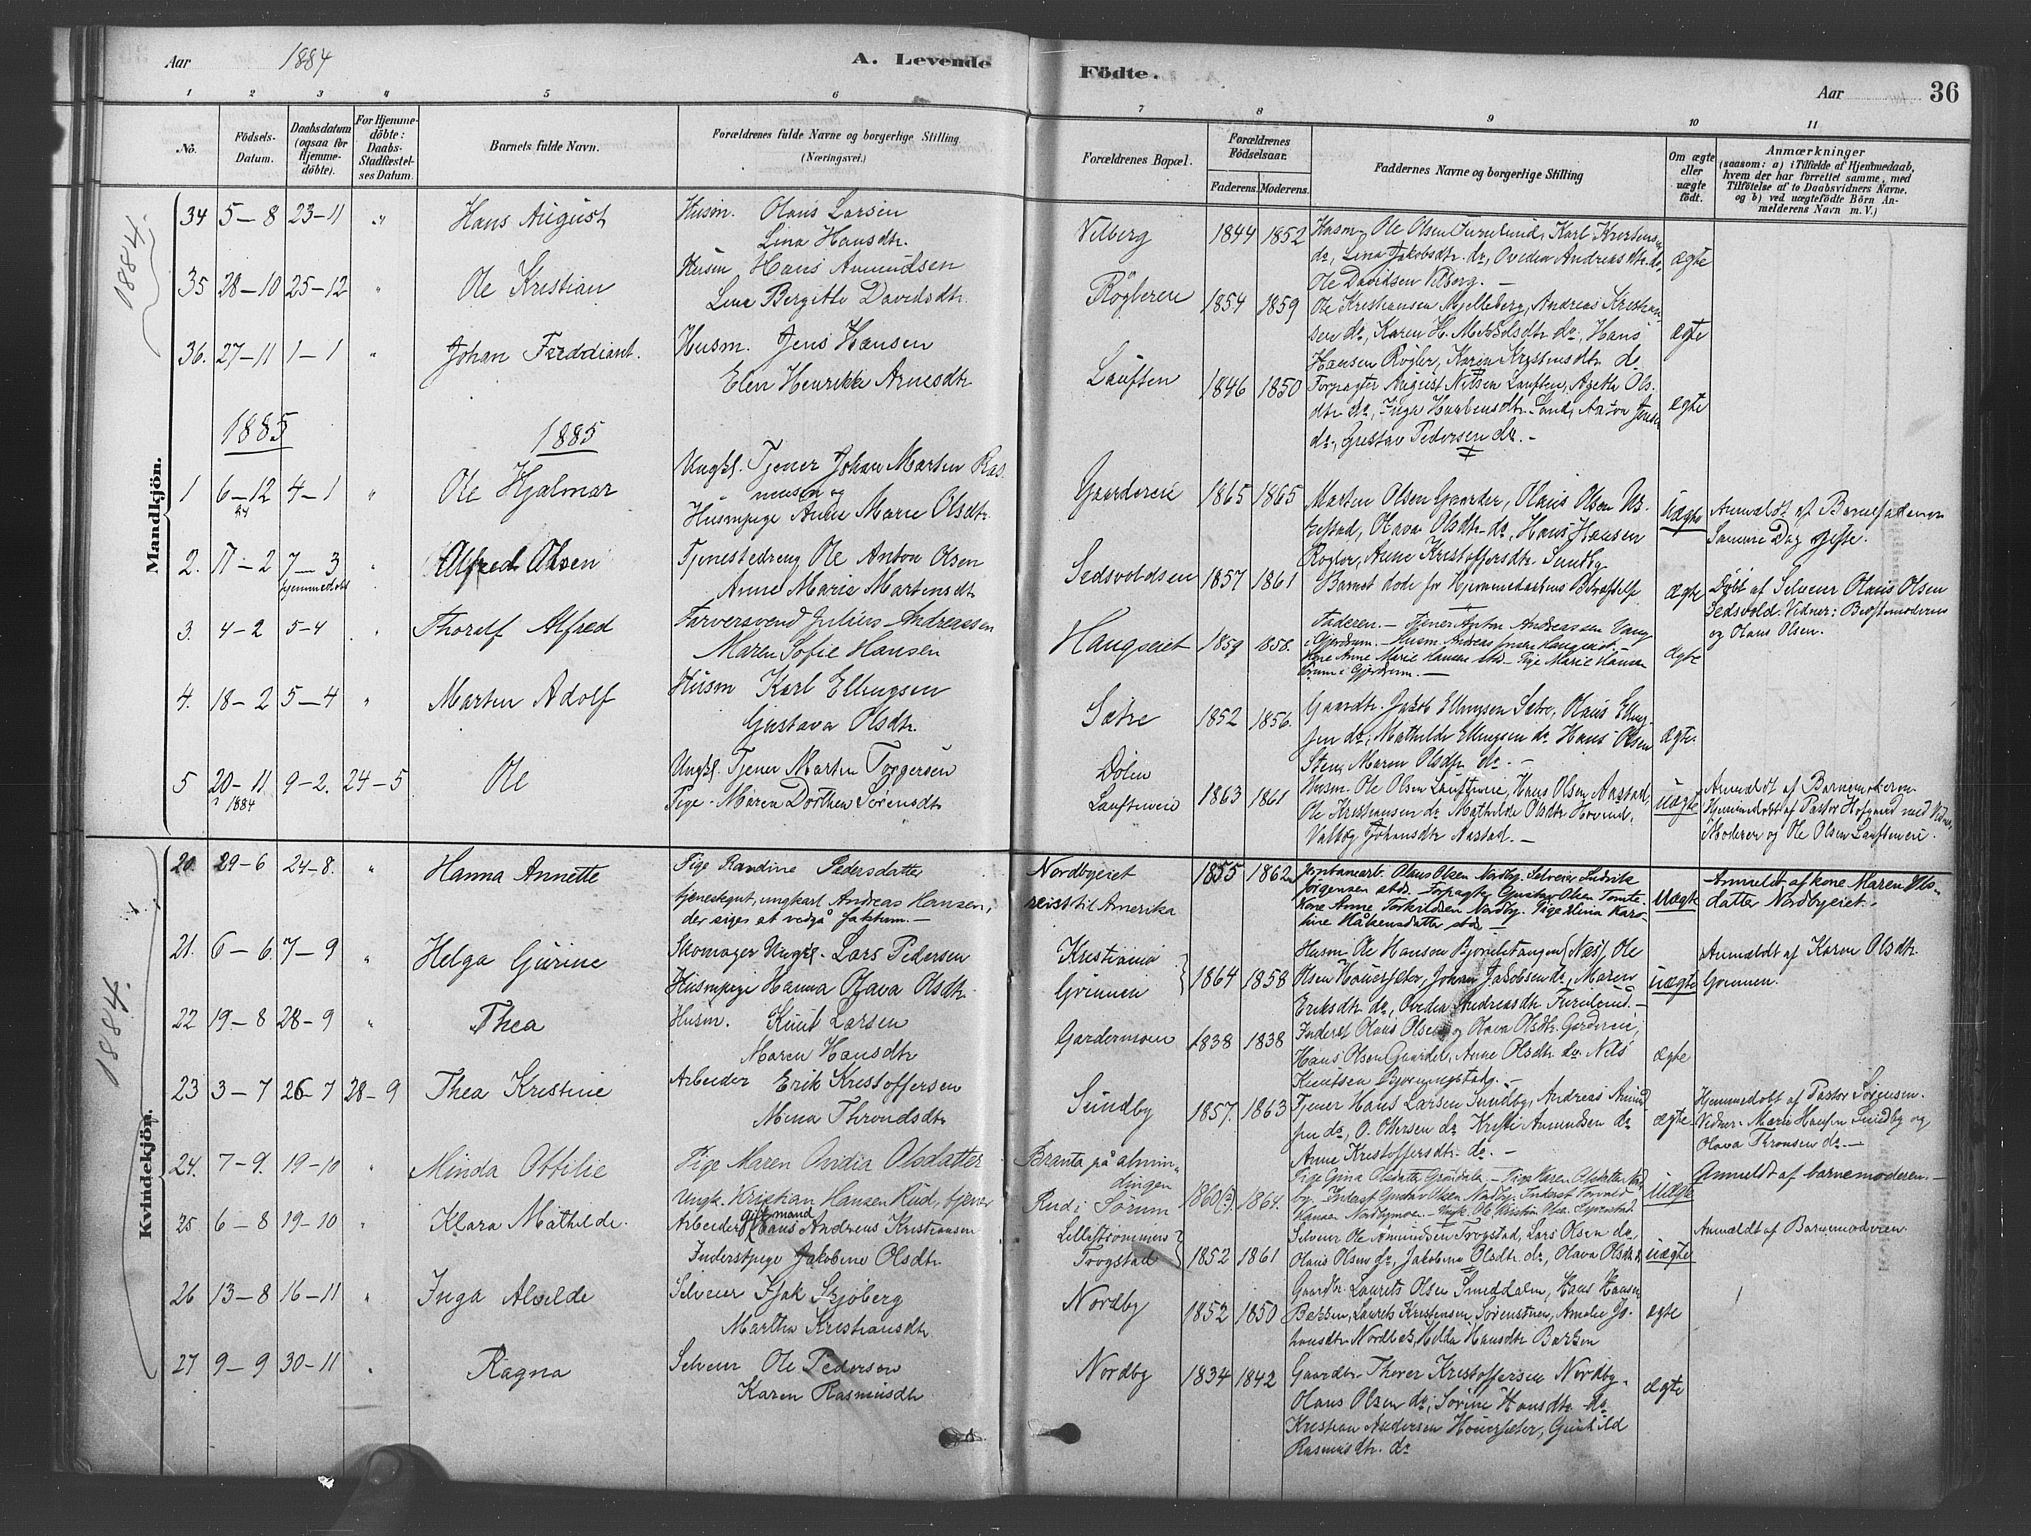 Aar 1884 A. Levende Fødte. Aar 36
1 2 3 4 5 6 7 8 9 10 11
No.
Födsels-
Datum.
Daabsdatum
(ogsaa for
Hjemme-
döbte).
For Hjemme-
döbte:
Daabs-
Stadfæstel-
ses Datum.
Barnets fulde Navn.
Forældrenes fulde Navne og borgerlige Stilling
(Næringsvei.)
Forældrenes Bopæl.
Forældrenes
Födselsaar.
Faderens. Moderens.
Faddernes Navne og borgerlige Stilling
Om ægte
eller
uægte
födt.
Anmærkninger
(saasom: a) i Tilfælde af Hjemmedaab,
hvem der har forrettet samme, med
Tilföielse af to Daabsvidners Navne.
og b) ved uægtefödte Börn An-
melderens Navn m. V.)
Mandkjön.
1884.
34 5-8 23-11 " Hans August
Husm. Olaus Larsen
Lina Hansdtr.
Vilberg 1844 1852
Husm. Ole Olsen Furulund, Karl Kristensen
do, Lina Jakobsdtr. do, Ovidia Andreasdtr. do,
Ole Davidsen Vilberg. -
ægte
35 28-10 25-12 " Ole Kristian
Husm Hans Amundsen
Lina Bergitte Davidsdtr.
Röglereie 1854 1859
Ole Kristiansen Mjelleberg, Andreas Kristian-
sen do, Karen H. do, Hans
Hansen Rögler, Karen do.
ægte
36. 27-11 1-1 " Johan Ferddiant.
Husm. Jens Hansen
Elen Henrikke Arnesdtr
Lauften 1846 1850
Forpagter August Nilsen Lauften, Agethe Ols-
dtr do, Inga Sand,
do, Gustav Pedersen do. -
ægte
1885 1885
1 6-12 84 4-1 " Ole Hjalmar
Ungkl. Tjener Johan Martin Ras-
mussen og
Huusmpige Anne Marie Olsdtr.
Gaardereie 1865 1865
Martin Olsen Gaarder, Olaus Olsen
Olava Olsdtr. do, Hans Hansen
Rögler, Anne Kristoffersdtr. Sundby
uægte
Anmeldt af Barnefaderen
Samme Dag gifte.
2. 17-2 7-3 hjemmedöbt " Alfred Olsen
Tjenestedreng Ole Anton Olsen
Anne Marie Martinsdtr
Sedsvoldseie 1857 1861
Barnet döde för Hjemmedaabens Bekræftelse
ægte
Döbt af Selveier Olaus Olsen
Sedsvold. Vidner: Bedstemoderen
og Olaus Olsen.
3. 4-2 5-4 " Thorolf Alfred
Farversvend Julius Andreassen
Maren Sofie Hansen
Haugseiet 1859 1858.
Faderen. - Tjener Anton Andreassen Vang
i Gjerdrum. - Husm. Andreas Haugseiet -
Anne Marie Hansen - Pige Marie Hansen
i Gjerdrum. -
ægte
4. 18-2 5-4 " Martin Adolf
Husm Karl Ellingsen
Gustava Olsdtr.
Sætre 1852 1856.
Gaardbr. Jakob Ellingsen Sætre, Olaus Elling-
sen do, Mathilde Ellingsen do, Hans Olsen
Sten, Maren Olsdtr. do. -
ægte.
5 20-11 1884 9-2. 24-5 Ole
Ungkl. Tjener Martin Torgersen
Pige. Maren Dorthea Sörensdtr
Dölen
Lauftneie 1863 1861
Husm. Ole Olsen Lauftneie, Hans Olsen Aastad,
Ole Kristiansen do, Mathilde Olsdtr. Hovind.
Valborg Johansdtr. Aastad. -
uægte
Anmeldt af Barnemoderen
Hjemmedöbt af Pastor Hofgaard med Vidner
Moderen og Ole Olsen Lauftneie.
Kvindekjön.
1884.
20. 29-6 24-8. " Hanna Annette
Pige Randine Pedersdatter
tjenestegut, ungkarl Andreas Hansen,
der siges at vedgå faktum. -
Nordbyeiet
reist til Amerika 1855 1862
Jernbanearb. Olaus Olsen Nordby, Selveier Ludvik
Jörgensen stds. - Forpagter Gustav Olsen
Kone Anne Torkildsen Nordby. Pige Elina Karo-
line Håkensdatter stds -
Uægte
Anmeldt af kone Maren Ols-
datter Nordbyeiet.
21. 6-6 7-9 " Helga Gurine
Skomager Ungkl. Lars Pedersen
Huusmpige Hanna Olava Olsdtr.
Kristiania
Grinnen 1864 1858
Husm Ole Hansen Bjornestangen (Næs), Ole
Olsen Houersæter, Johan Jakobsen do, Maren
Eriksdtr. do, Ovidia Andreasdtr. Furulund. -
uægte
Anmeldt af Karen Olsdtr.
Grinnen.
22 19-8 28-9 " Thea
Husm. Knut Larsen
Maren Hansdtr
Gardermoen 1838 1838
Inderst Olaus Olsen og Olava Olsdtr. Gardereie,
Hans Olsen Gaarder, Anne Olsdtr. do, Nils
Knutsen -
ægte
23 3-7 26-7 28-9 Thea Kristine
Arbeider Erik Kristoffersen
Mina Throndsdtr
Sundby 1857. 1863
Tjener Hans Larsen Sundby, Andreas Amund-
sen do, O. Olsen do, Kristi Amundsen do
Anne Kristoffersdtr. do. -
ægte
Hjemmedöbt af Pastor Sörensen.
Vidner. Marie Hansen Sundby og
Olava Thronsen do. -
24. 7-9. 19-10 " Minda Ottilie
Pige Maren Ovidia Olsdatter
Ungk. Kristian Hansen Rud, tjener
Branta på almin-
dingen
Rud i Sörum 1860(?) 1864.
Pige Gina Olsdatter Gröndal. - Pige Karen Olsdatter
Inderst Gustav Olsen Nordby. Inderst Torvald
Hansen Nordbymoen. -
uægte
Anmeldt af barnemoderen. -
25 6-8 19-10 " Klara Mathilde.
Arbeider gift mand Hans Andreas Kristiansen
Inderstpige Jakobine Olsdtr
Lilleströmmen?
Trogstad 1852 1861
Selveier Ole Amundsen Trogstad, Lars Olsen do,
Olaus Olsen do, Jakobine Olsdtr do, Olava Olsdtr
uægte
Anmeldt af Barnemoderen
26 13-8 16-11 " Inga Alvilde
Selveier Isak Skjöberg
Martha Kristiansdtr
Nordby 1852 1850
Gaardbr. Laurets Olsen Smeddalen, Hans Hansen
Bakken, Laurets Kristensen Amalie Jo-
hansdtr Nordby, Helda Hansdtr Bakken
ægte
27 9-9 30-11 " Ragna
Selveier Ole Pedersen
Karen Rasmusdtr
Nordby 1834 1842
Gaardbr. Thorer Kristoffersen Nordby.
Olaus Olsen do, Sörine Hansdtr. do
Kristian Andersen Houersæter, Gunhild
Rasmusdtr. do
ægte